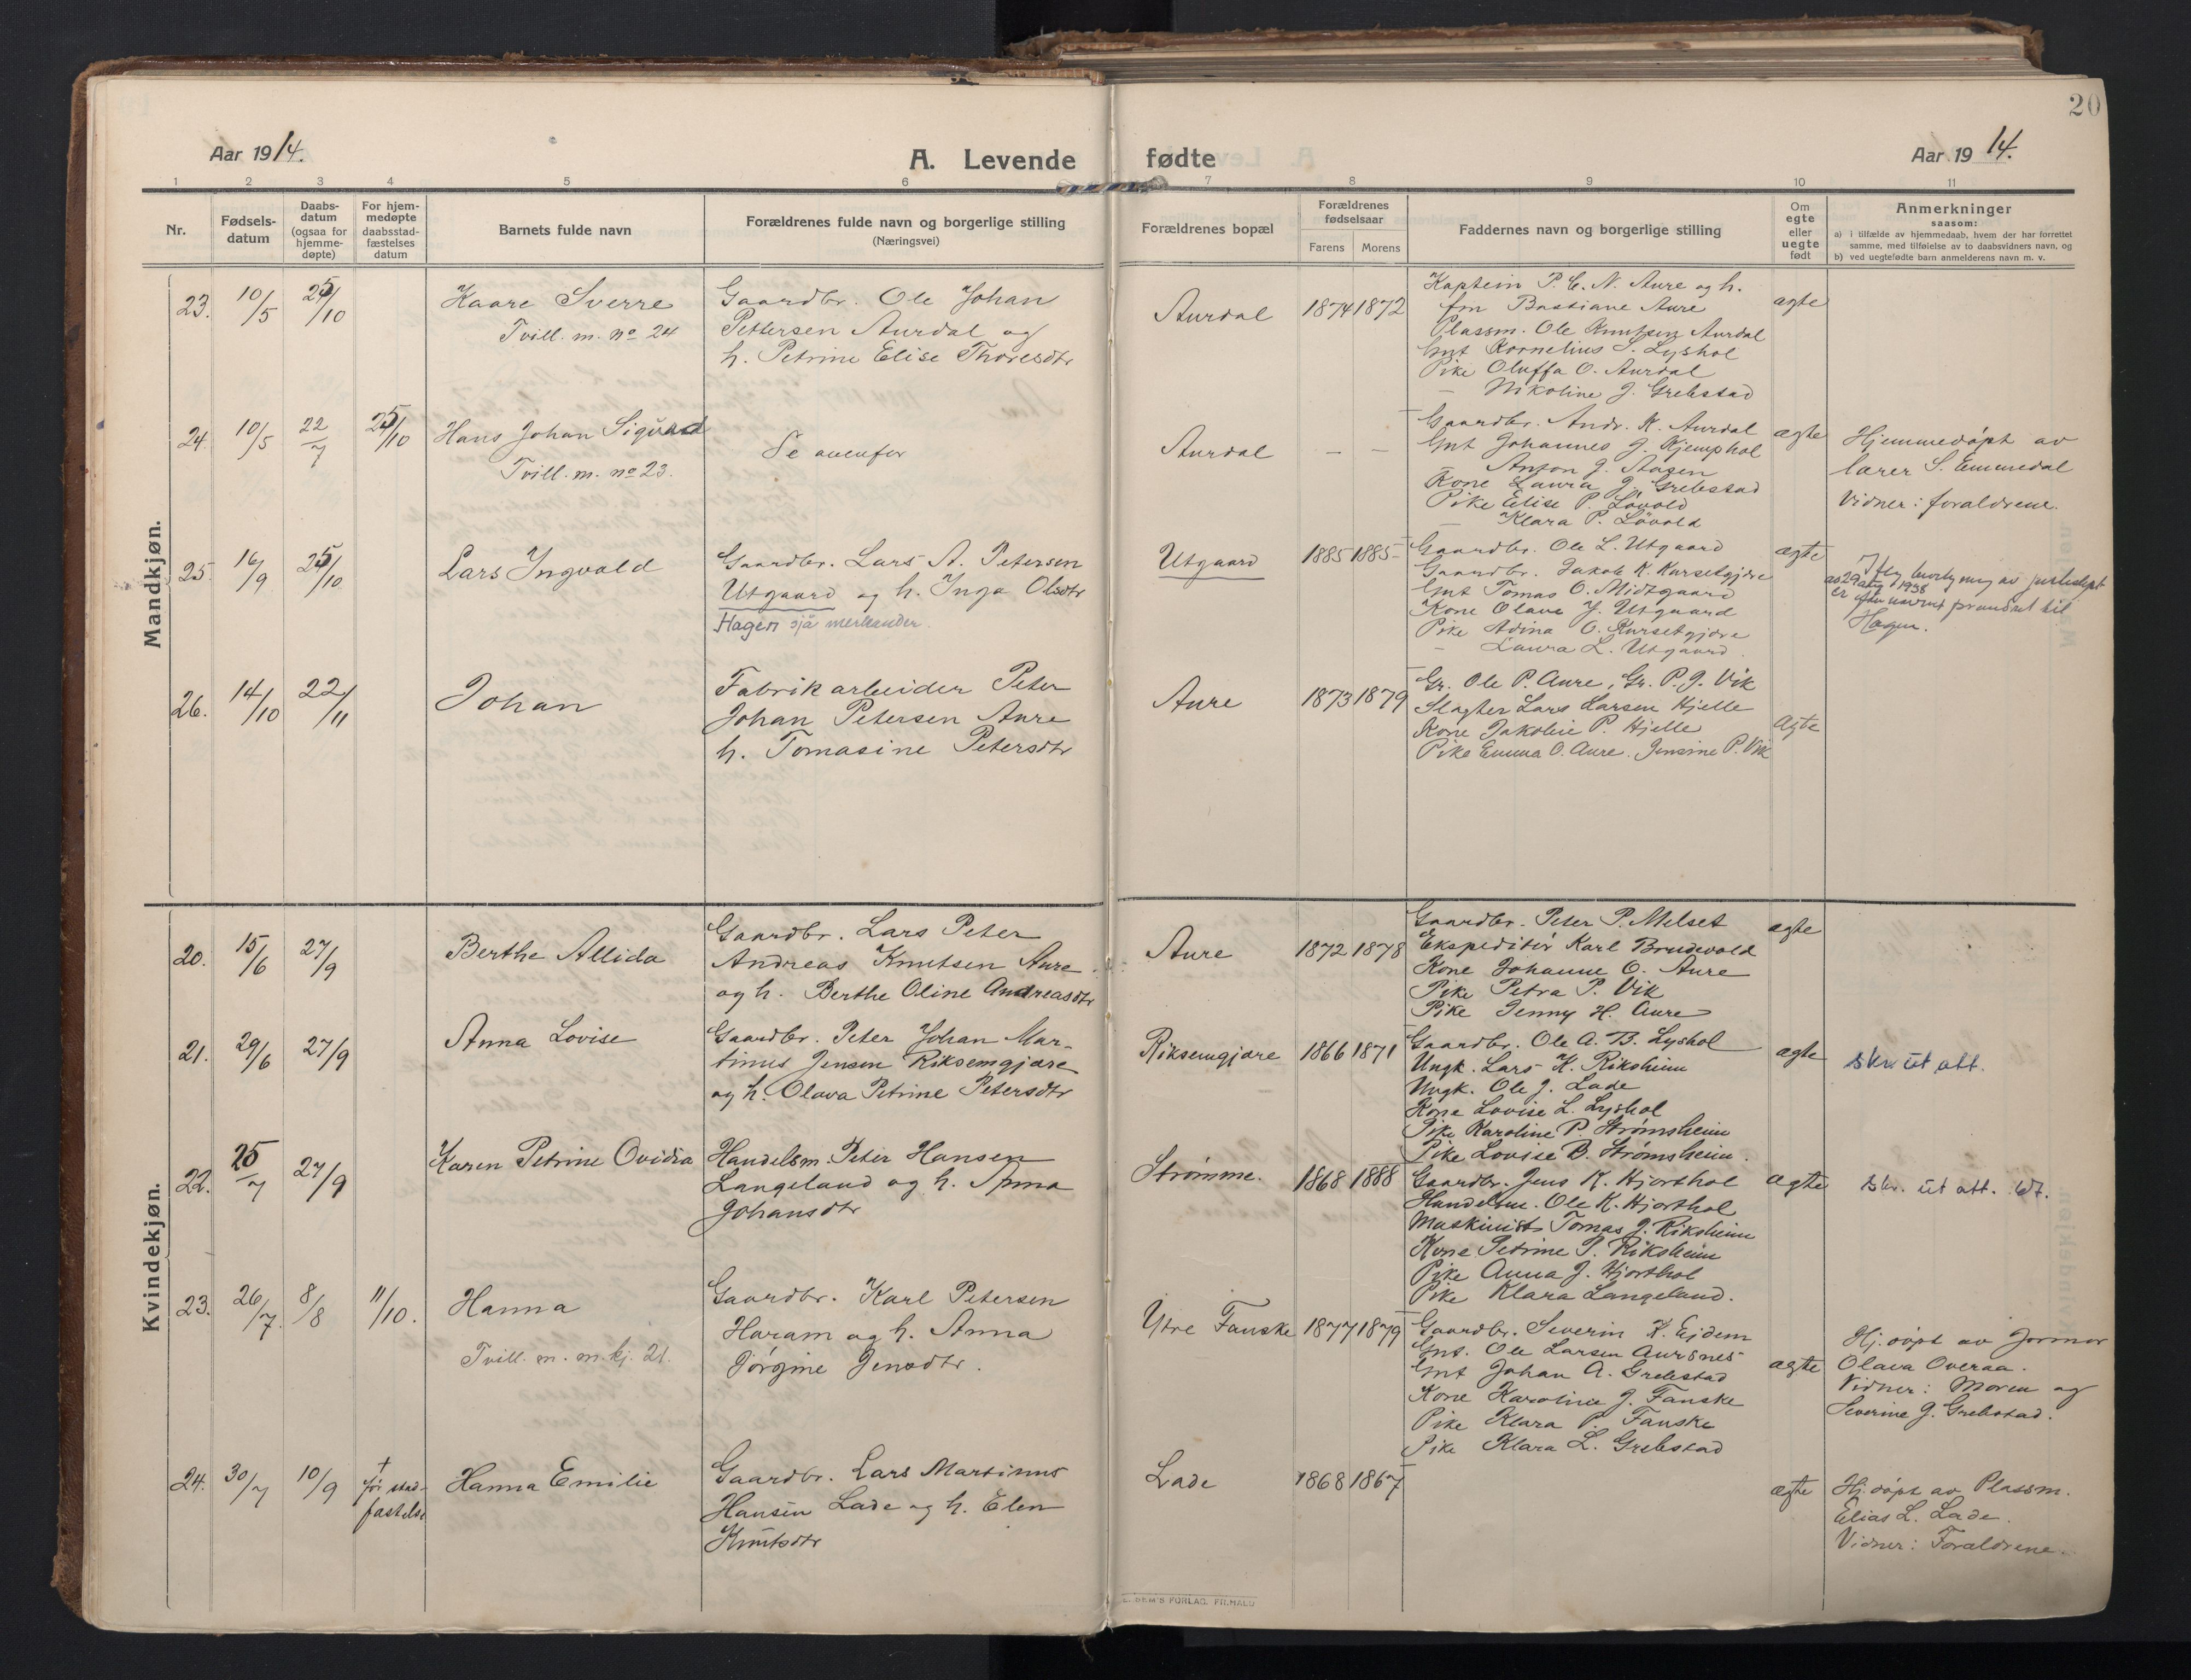 20
Aar 1914.
A. Levende fødte
Aar 1914.
1 2 3 4 5 6 7 8 9 10 11
Nr.
Fødsels-
datum
Daabs-
datum
(ogsaa for
hjemme-
døpte)
For hjem-
medøpte
daabsstad-
fæstelses
datum
Barnets fulde navn
Forældrenes fulde navn og borgerlige stilling
(Næringsvei)
Forældrenes bopæl
Forældrenes
fødselsaar
Farens Morens
Faddernes navn og borgerlige stilling
Om
egte
eller
uegte
født
Anmerkninger
saasom:
a) i tilfælde av hjemmedaab, hvem der har forrettet
samme, med tilføielse av to daabsvidners navn, og
b) ved uegtefødte barn anmelderens navn m. v.
Mandkjøn.
23. 10/5 25/10
Kaare Sverre
Tvill. m. no 24
Gaardbr. Ole Johan
Pettersen Aurdal og
h. Petrine Elise Thoresdtr
Aurdal 1874 1872
Kaptein P. C. N. Aure og h.
fru Bastiane Aure
Plassm. Ole Knutsen Aurdal
Gut Kornelius S. Lyshol
Pike Oluffa O. Aurdal
— Nikoline J. Grebstad
ægte
24. 10/5 22/7 25/10
Hans Johan Sigvad
Tvill. m. no 23.
Se ovenfor
Aurdal — —
Gaardbr. Andr. K. Aurdal
Gut Johannes J. Kjemphol
Anton J. Aasen
Kone Laura J. Grebstad
Pike Elise P. Løvold
— Klara P. Løvold
ægte
Hjemmedøpt av
lærer S. Emmedal
Vidner: forældrene.
25. 16/9 25/10
Lars Ingvald
Gaardbr. Lars A. Petersen
Utgaard og h. Inga Olsdtr
Hagen sjå merknader.
Utgaard 1885 1885
Gaardbr. Ole L. Utgaard
Gaardbr. Jakob K. Kursetgjære
Gut Tomas O. Midtgaard
Kone Olava J. Utgaard
Pike Adina O. Kursetgjære
— Laura L. Utgaard.
ægte
av 29 aug 1938
til
Hagen.
26. 14/10 22/11
Johan
Fabrikarbeider Peter
Johan Petersen Aure
h. Tomasine Petersdtr
Aure 1873 1879
Gr. Ole P. Aure, Gr. P. J. Vik
Slagter Lars Larsen Hjelle
Kone Jakobie P. Hjelle
Pike Emma O. Aure. Jensine P. Vik
ægte
Kvindekjøn.
20. 15/6 27/9
Berthe Allida
Gaardbr. Lars Peter
Andreas Knutsen Aure
og h. Berthe Oline Andreasdtr
Aure 1872 1878
Gaardbr. Peter P. Melset
Ekspeditør Karl Brudevold
Kone Johanne O. Aure
Pike Petra P. Vik
Pike Jenny H. Aure
ægte
21. 29/6 27/9
Anna Lovise
Gaardbr. Peter Johan Mar-
tinus Jensen Riksemgjære
og h. Olava Petrine Petersdtr
Riksemgjære 1866 1871
Gaardbr. Ole A. B. Lyshol
Ungk. Lars K. Riksheim
Ungk. Ole J. Lade
Kone Lovise L. Lyshol
Pike Karoline P. Strømsheim
Pike Lovise B. Strømsheim.
ægte
skr. ut att.
22. 25/7 27/9
Karen Petrine Ovidia
Handelsm. Peter Hansen
Langeland og h. Anna
Johansdtr
Strømme. 1868 1888
Gaardbr. Jens K. Hjorthol
Handelsm. Ole K. Hjorthol
Maskinist Tomas J. Riksheim
Kone Petrine P. Riksheim
Pike Anna J. Hjorthol
Pike Klara Langeland.
ægte
skr. ut att. 67.
23. 26/7. 8/8 11/10.
Hanna
Tvill. m. m.kj. 21.
Gaardbr. Karl Petersen
Haram og h. Anna
Jørgine Jensdtr.
Ytre Fauske 1877 1879
Gaardbr. Severin K. Eidem
Gut. Ole Larsen Aursnes
Gut Johan A. Grebstad
Kone Karoline J. Fauske
Pike Klara P. Fauske
Pike Klara L. Grebstad
ægte
Hj.døpt av Jormor
Olava Overaa.
Vidner: Moren og
Severine J. Grebstad.
24. 30/7 10/9
†
før stad-
fæstelse
Hanna Emilie
Gaardbr. Lars Martinus
Hansen Lade og h. Elen
Knutsdtr
Lade 1868 1867
ægte
Hj.døpt av Plassm.
Elias L. Lade.
Vidner: Forældrene.
FORLAG. FILIAL